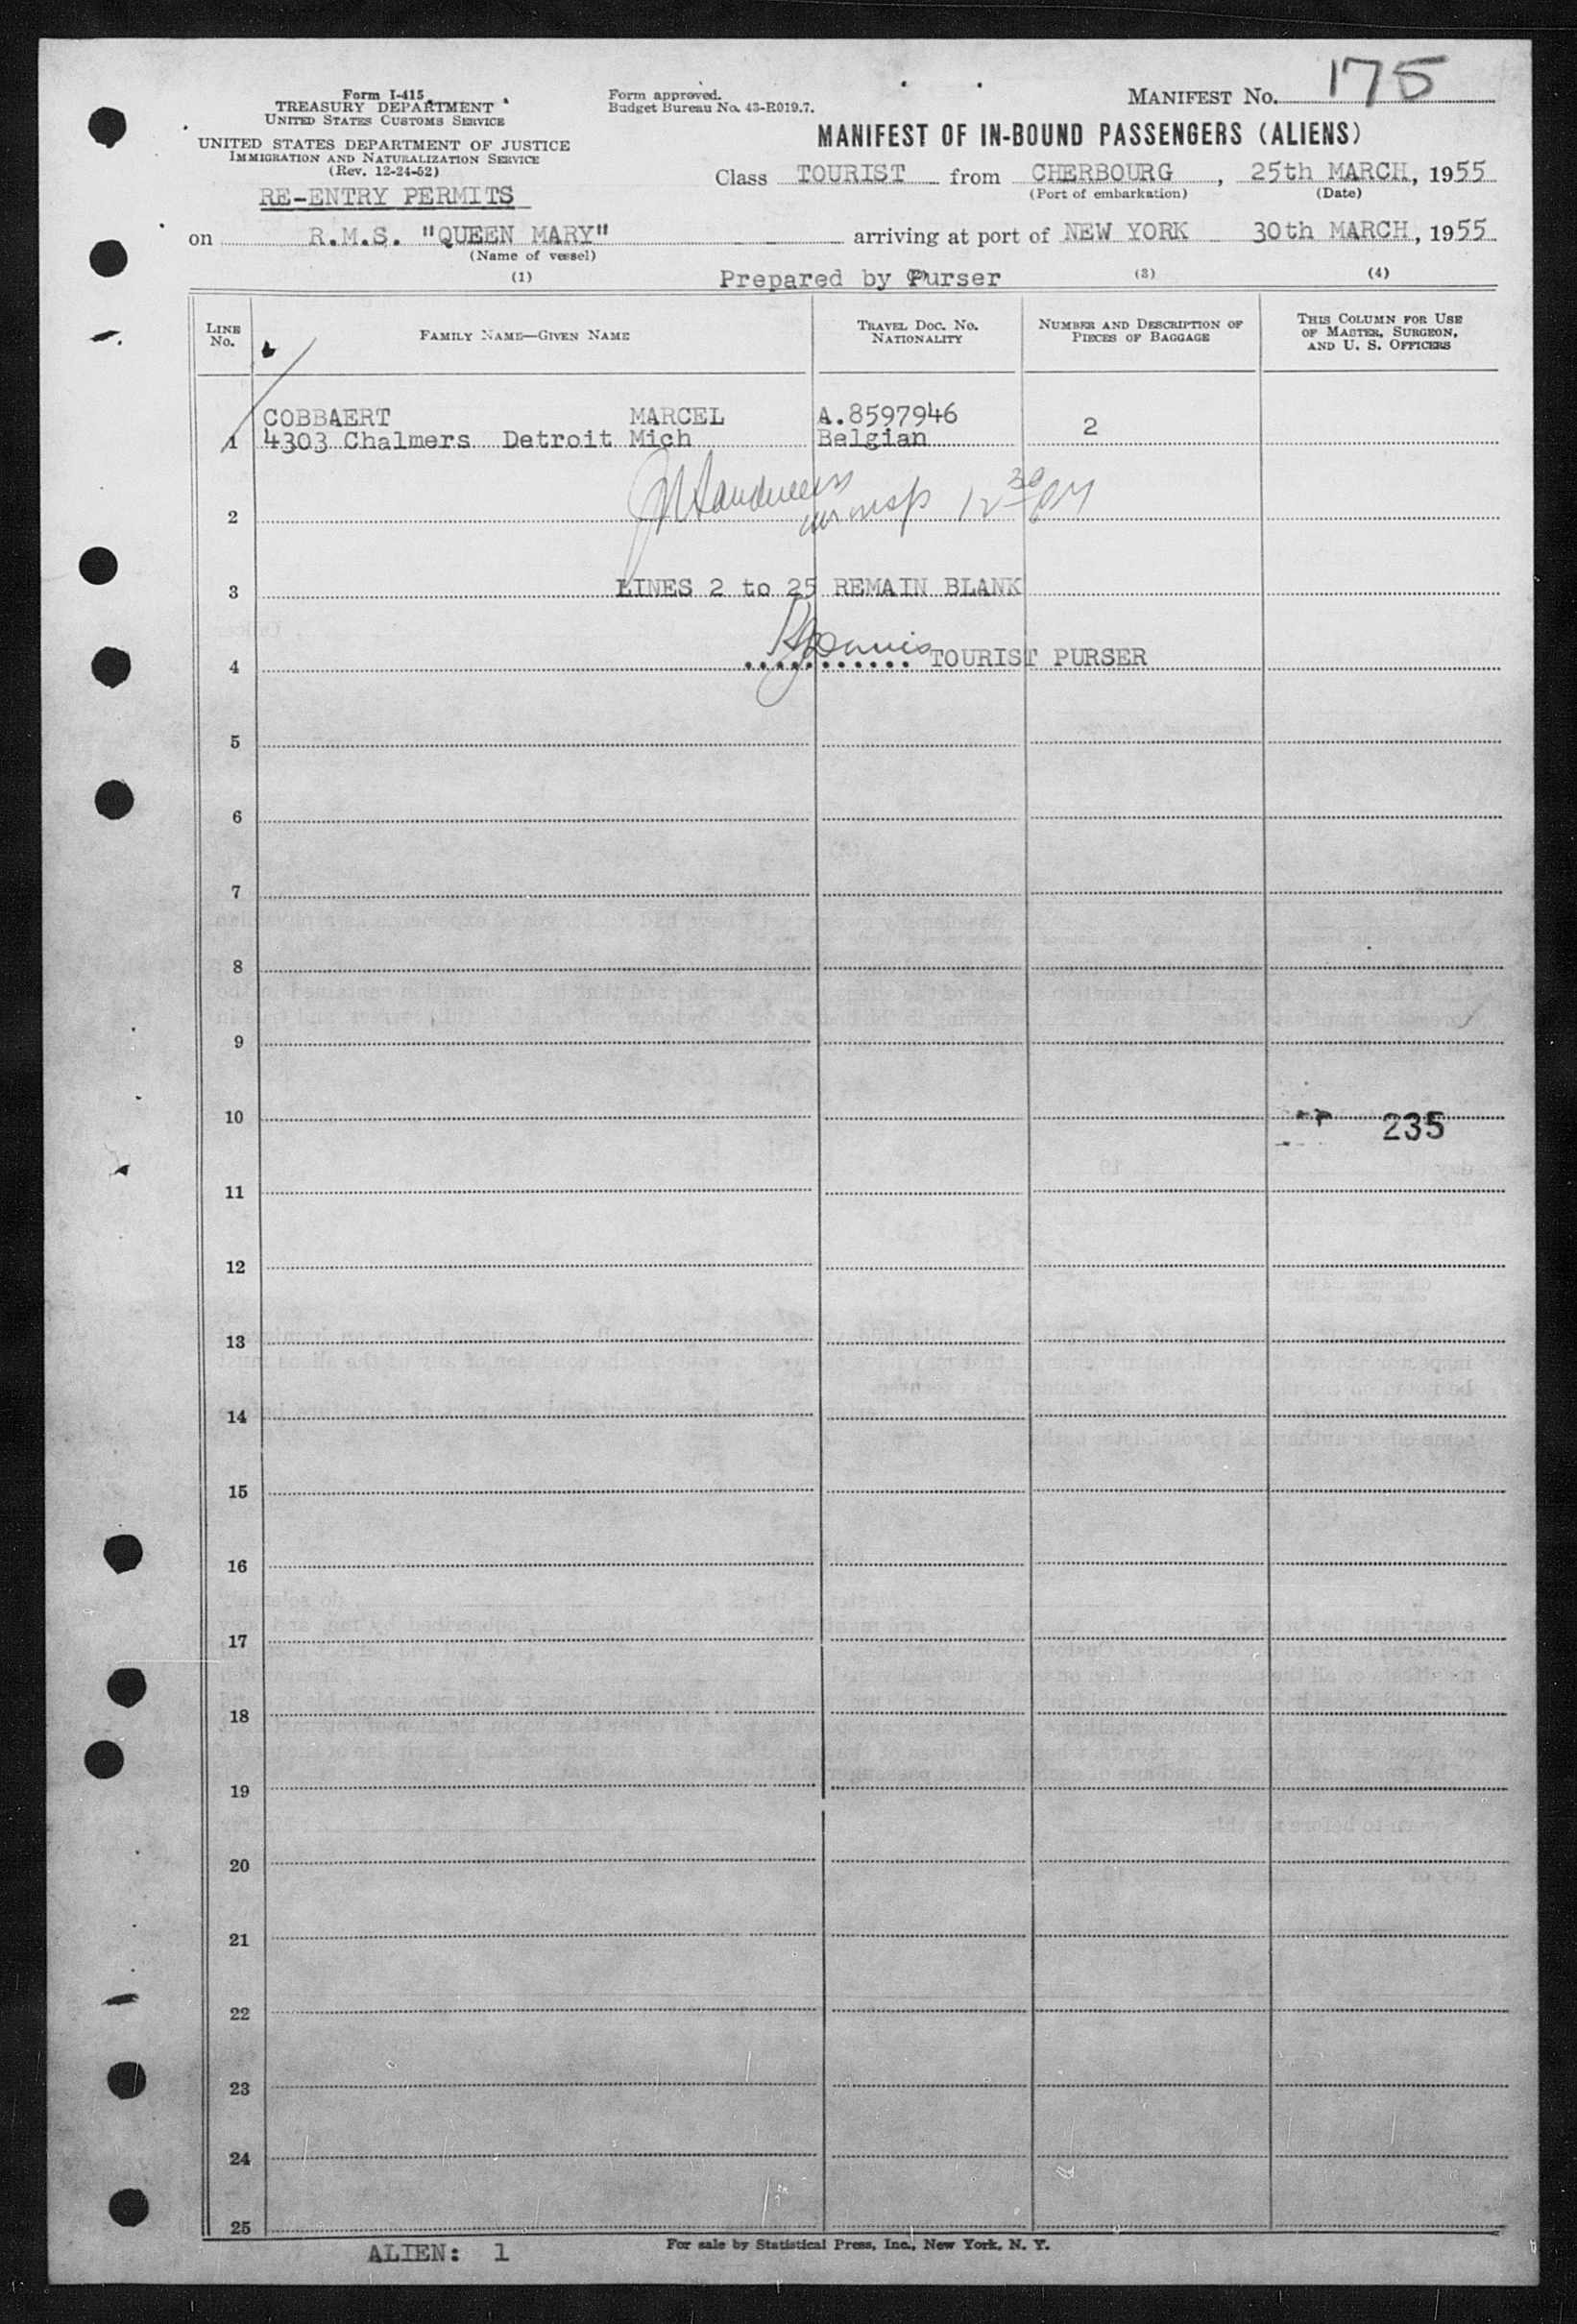 Form I-415
TREASURY DEPARTMENT
UNITED STATES CUSTOMS SERVICE
UNITED STATES DEPARTMENT OF JUSTICE
IMMIGRATION AND NATURALIZATION SERVICE
(Rev. 12-24-52)
RE-ENTRY PERMITS
Form approved.
Budget Bureau No. 43-R019.7.
MANIFEST NO. 175
MANIFEST OF IN-BOUND PASSENGERS (ALIENS)
Class TOURIST from CHERBOURG, 25th MARCH, 1955
(Port of embarkation) (Date)
on R.M.S. "QUEEN MARY" arriving at port of NEW YORK 30th MARCH, 1955
(Name of vessel)
(1) Prepared by Purser (3) (4)
LINE NO.
FAMILY NAME—GIVEN NAME
TRAVEL DOC. NO. NATIONALITY
NUMBER AND DESCRIPTION OF PIECES OF BAGGAGE
THIS COLUMN FOR USE OF MASTER, SURGEON, AND U. S. OFFICERS
COBBAERT MARCEL A.8597946
1 4303 Chalmers Detroit Mich Belgian 2
2 insp 12 30 PM
3 LINES 2 to 25 REMAIN BLANK
4 Davis TOURIST PURSER
5
6
7
8
9
10 235
11
12
13
14
15
16
17
18
19
20
21
22
23
24
25
ALIEN: 1
For sale by Statistical Press, Inc., New York, N. Y.